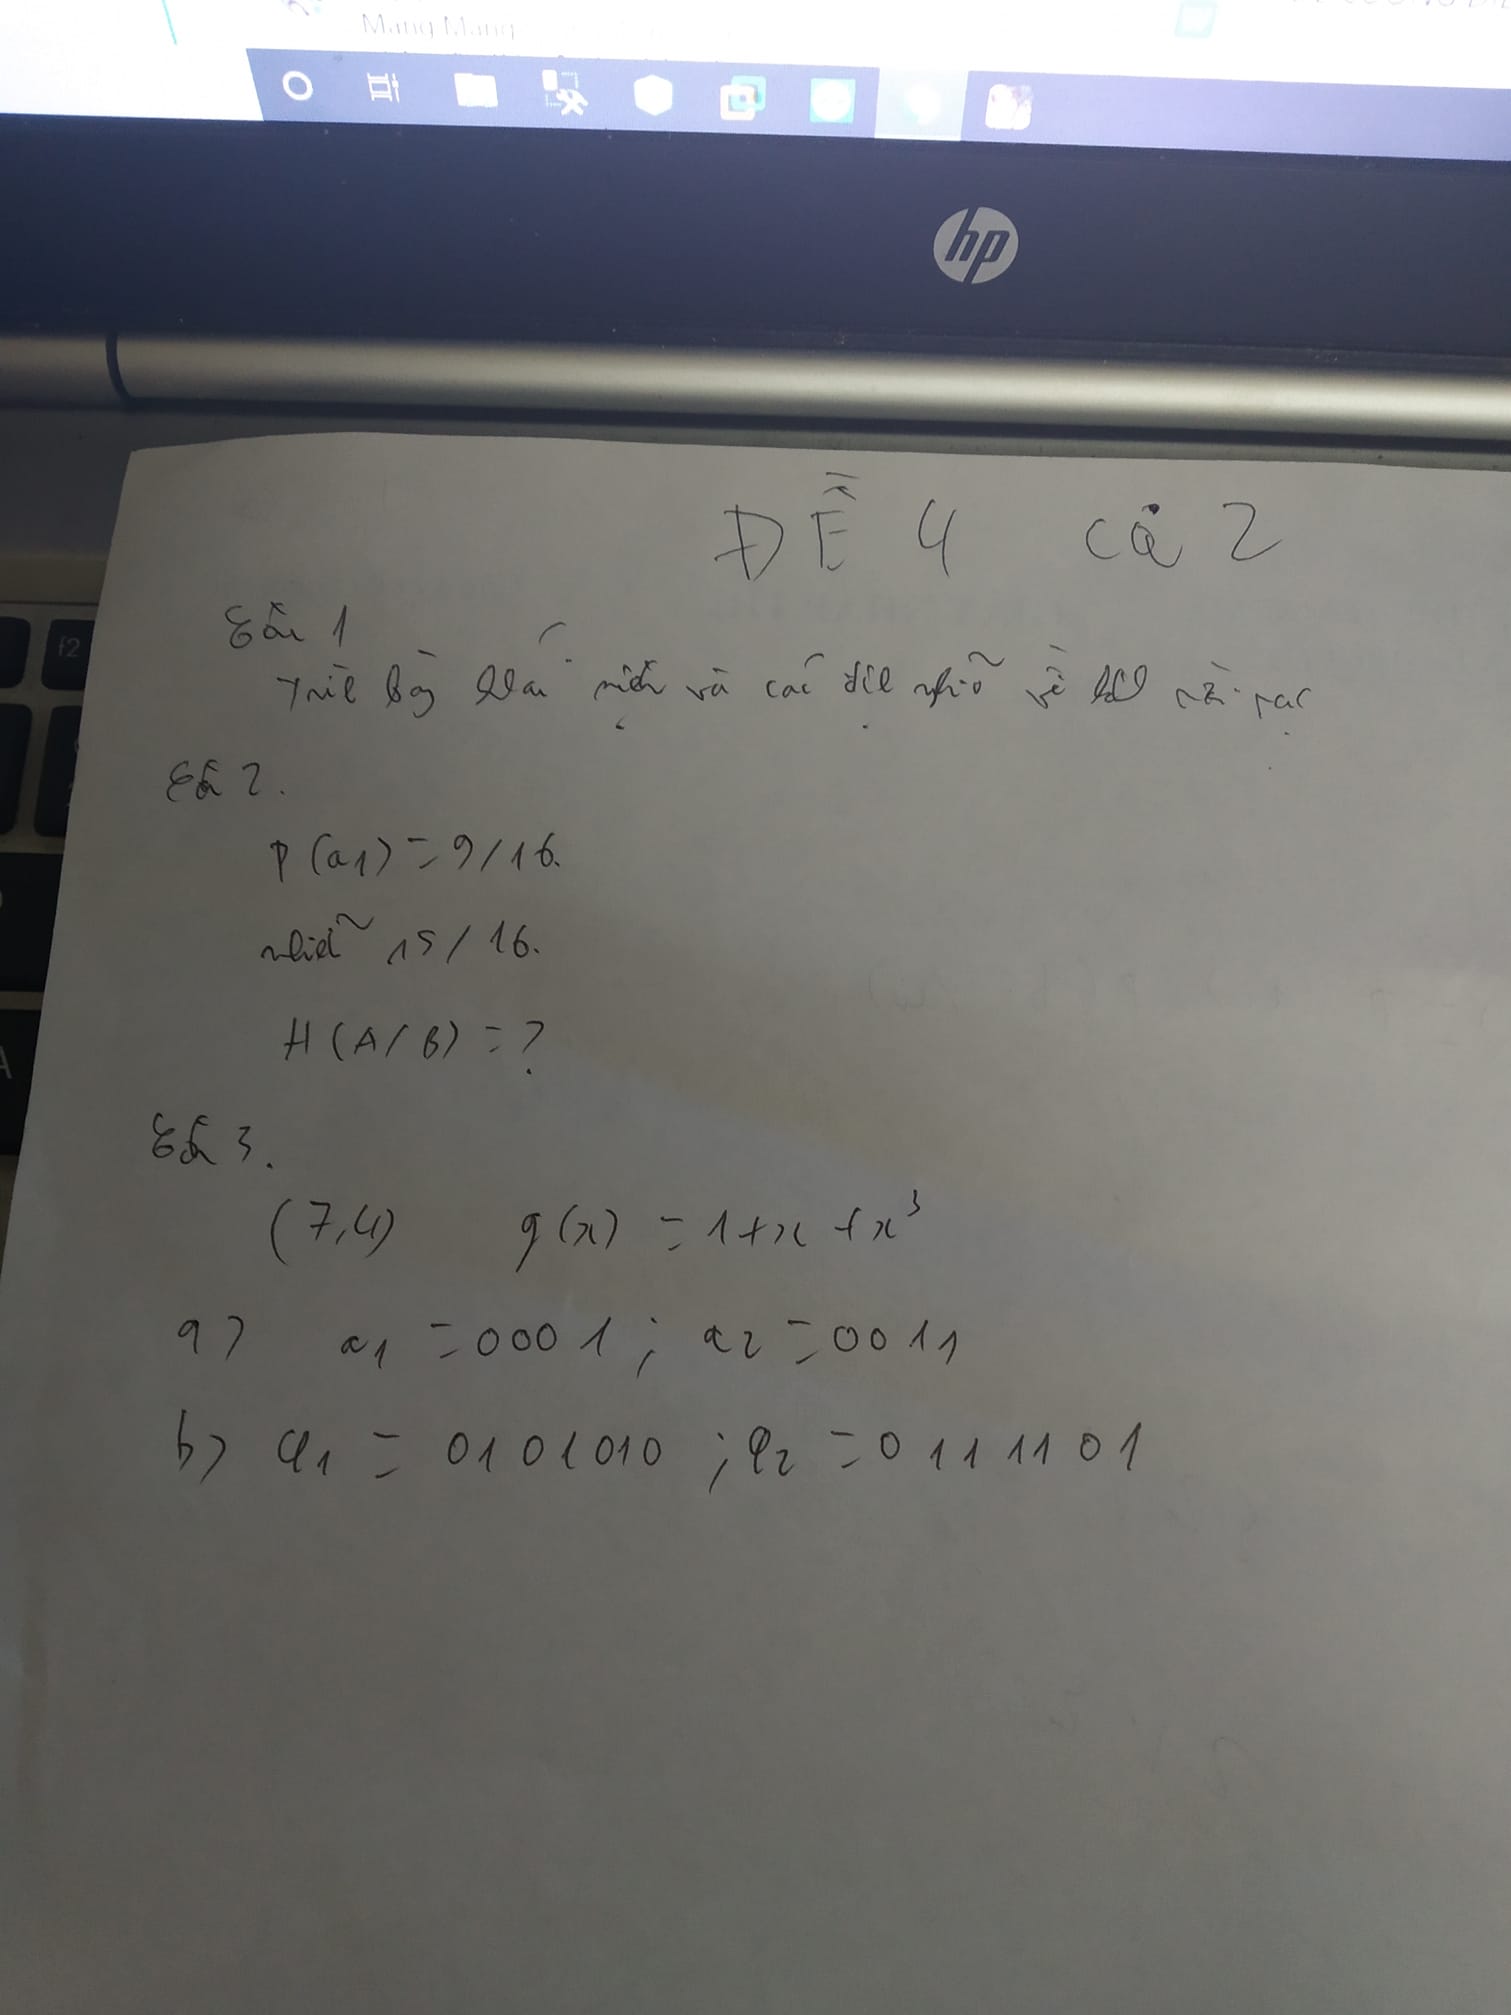 Mang Mang
hp
f2
A
ĐỀ 4 ca 2
Câu 1
Trình bày khái niệm và các định nghĩa về rời rạc
Câu 2.
P(a1) = 9/16.
nhiễu 15/16.
H(A/B) = ?
Câu 3.
(7,4) g(x) = 1+x+x³
a) a1 = 0001; a2 = 0011
b) = 0101010; = 0111101